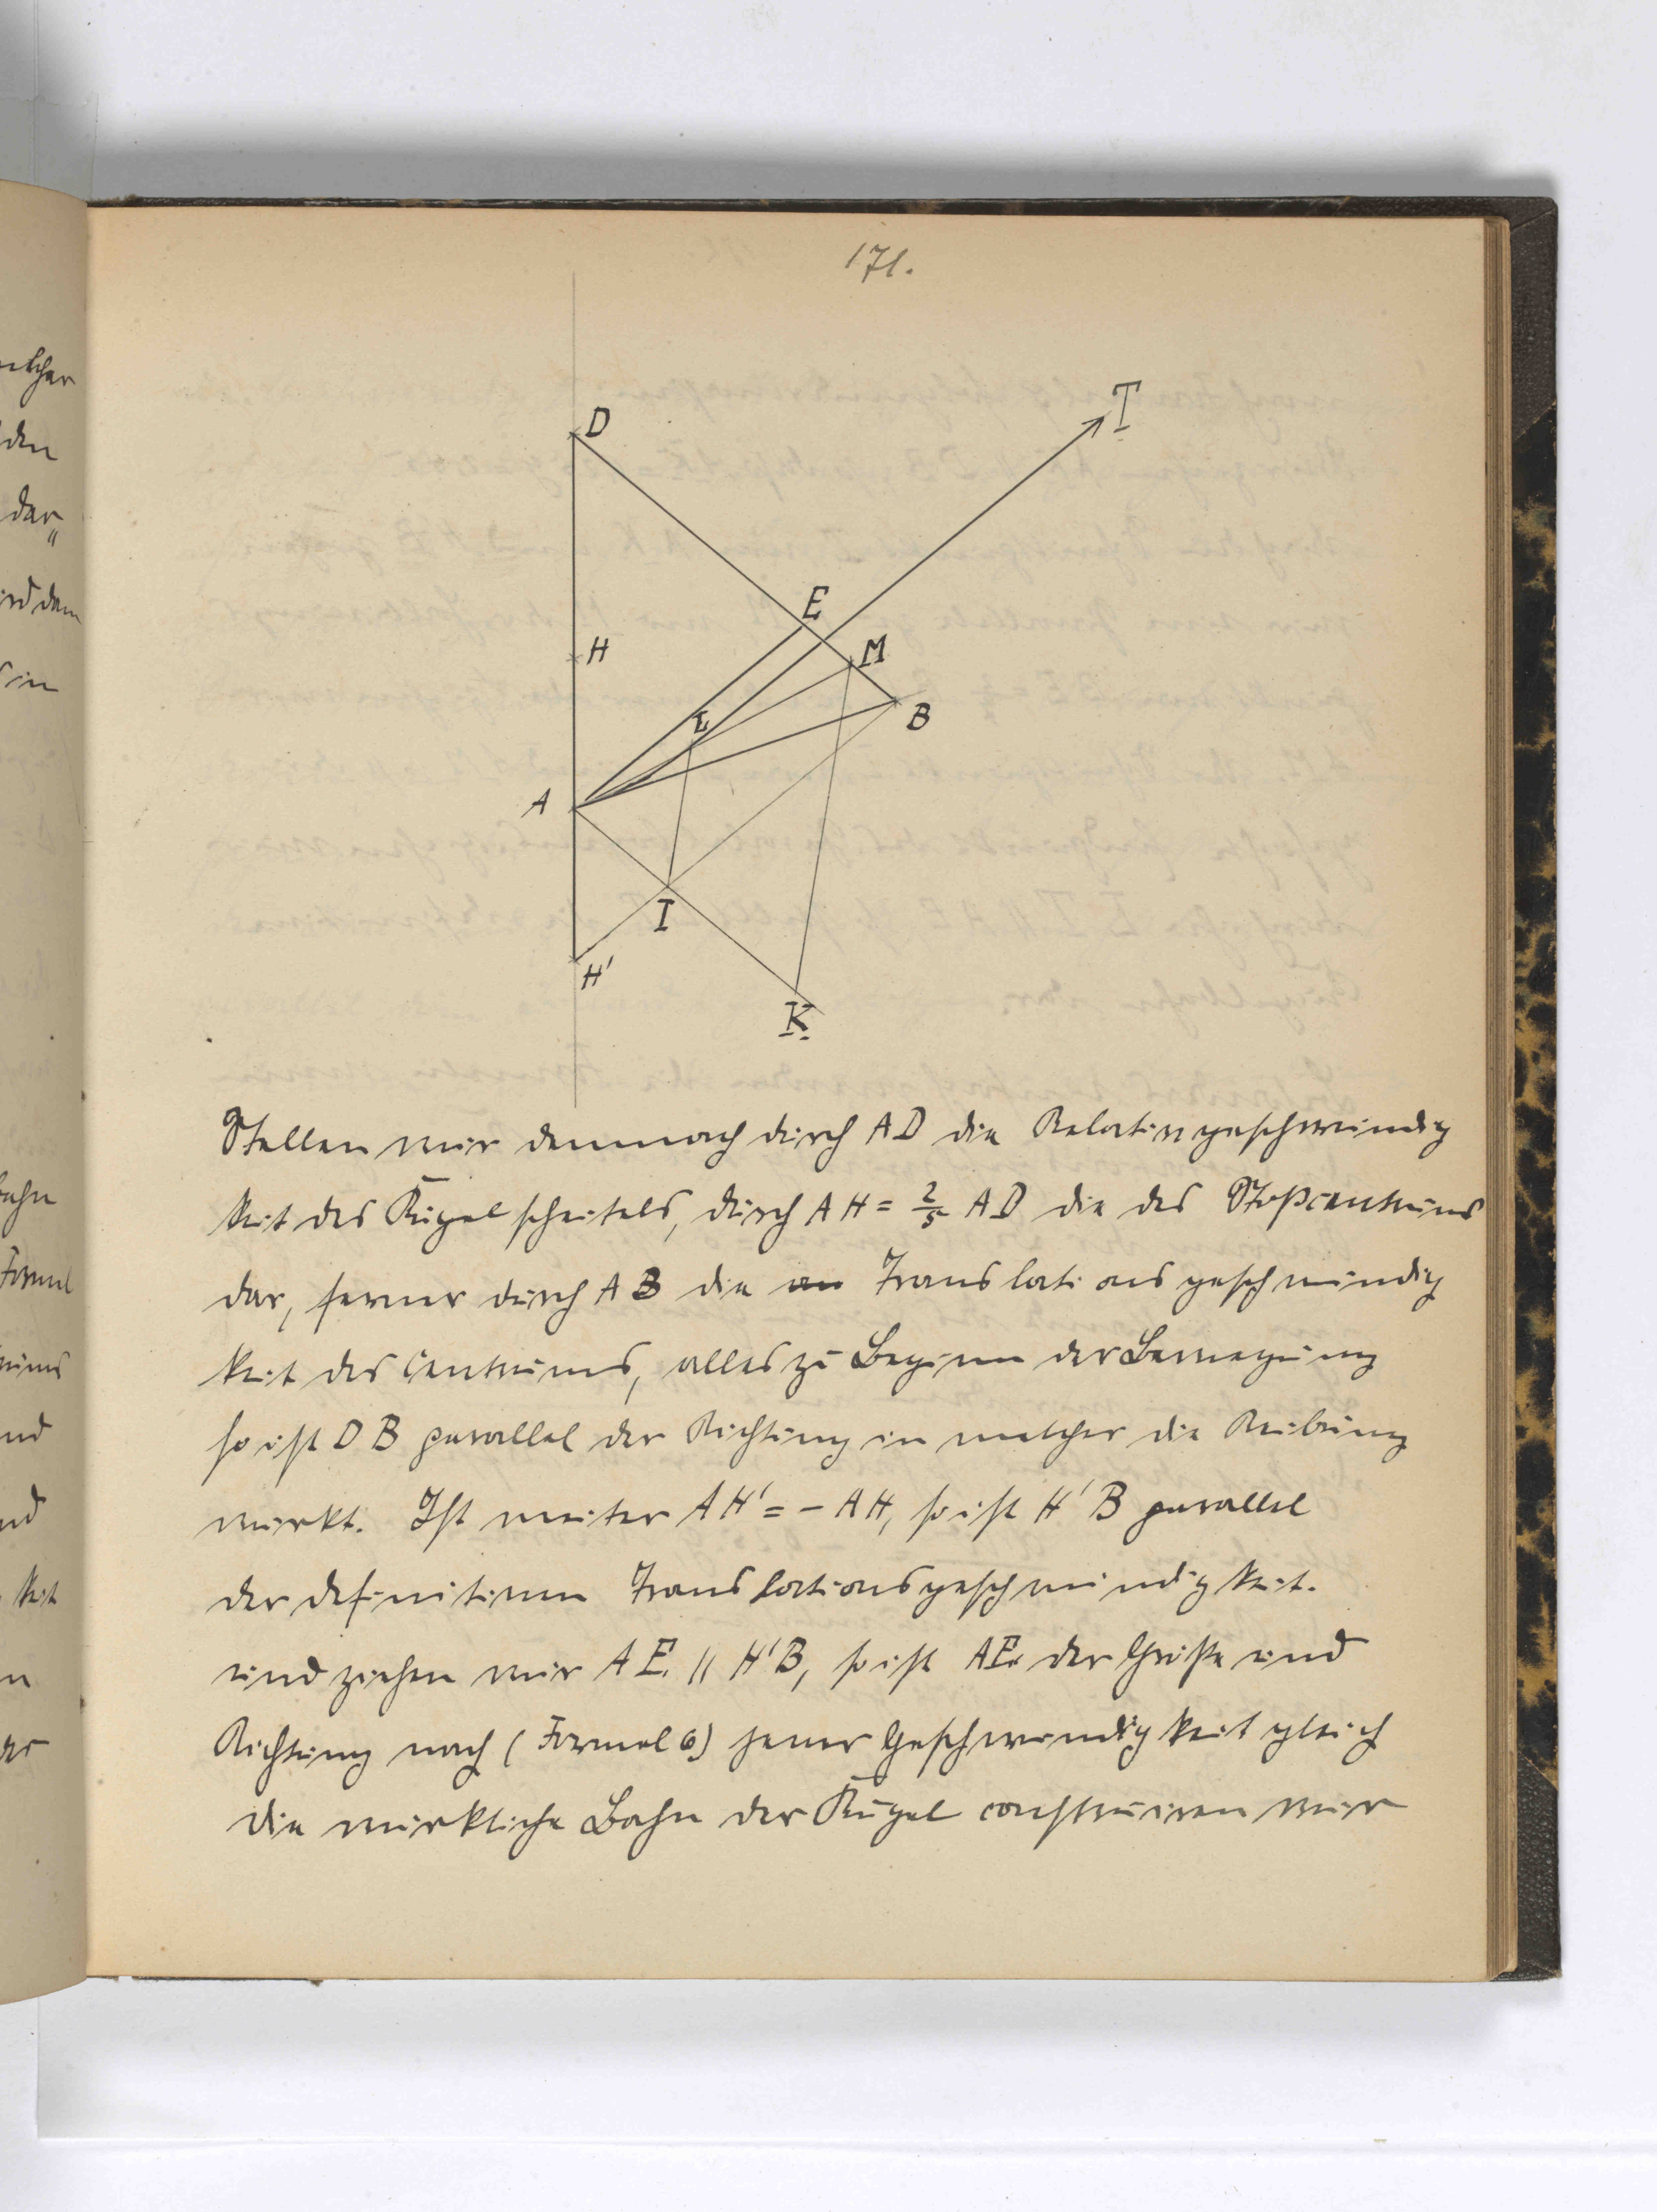 171.
D
T
E
H
M
L
B
A
I
H'
K
Stellen wir demnach durch AD die Relativgeschwindig
keit des Kugelscheitels, durch AH = 2/5 AD die des Stoßcentrums
dar, ferner durch AB die Translationsgeschwindig
keit des Centrums, alles zu Beginn der Bewegung
so ist DB parallel der Richtung in welcher die Reibung
wirkt. Ist weiter AH' = - AH, so ist H'B parallel
der definitiven Translationsgeschwindigkeit.
und ziehen wir AE. || H'B, so ist AE. der Größe und
Richtung nach (Formel 6) jener Geschwindigkeit gleich
die wirkliche Bahn der Kugel construiren wir
elcher
den
dar„
ird dem
in
bahn
Formel
nd
nd
keit